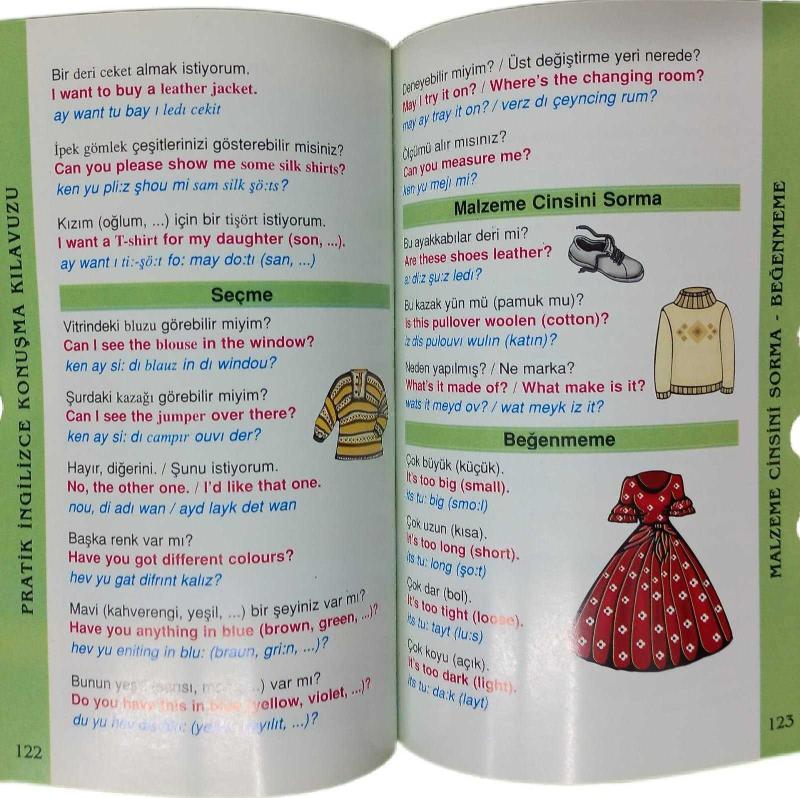 PRATİK İNGİLİZCE KONUŞMA KILAVUZU
Bir deri ceket almak istiyorum.
I want to buy a leather jacket.
ay want tu bay ı ledı cekit
İpek gömlek çeşitlerinizi gösterebilir misiniz?
Can you please show me some silk shirts?
ken yu pli:z şhou mi sam silk şö:ts?
Kızım (oğlum, ...) için bir tişört istiyorum.
I want a T-shirt for my daughter (son, ...).
ay want ı ti:-şö:t fo: may do:tı (san, ...)
Seçme
Vitrindeki bluzu görebilir miyim?
Can I see the blouse in the window?
ken ay si: dı blauz in dı windou?
Şurdaki kazağı görebilir miyim?
Can I see the jumper over there?
ken ay si: dı campır ouvı der?
Hayır, diğerini. / Şunu istiyorum.
No, the other one. / I'd like that one.
nou, di adı wan / ayd layk det wan
Başka renk var mı?
Have you got different colours?
hev yu gat difrınt kalız?
Mavi (kahverengi, yeşil, ...) bir şeyiniz var mı?
Have you anything in blue (brown, green, ...)?
hev yu eniting in blu: (braun, gri:n, ...)?
Bunun ...) var mı?
Do you have this in blue (yellow, violet, ...)?
du yu hev ...)?
122
Deneyebilir miyim? / Üst değiştirme yeri nerede?
May I try it on? / Where's the changing room?
may ay tray it on? / verz dı çeyncing rum?
Ölçümü alır mısınız?
Can you measure me?
ken yu mejı mi?
Malzeme Cinsini Sorma
Bu ayakkabılar deri mi?
Are these shoes leather?
a: di:z şu:z ledı?
Bu kazak yün mü (pamuk mu)?
Is this pullover woolen (cotton)?
iz dis pulouvı wulın (katın)?
Neden yapılmış? / Ne marka?
What's it made of? / What make is it?
wats it meyd ov? / wat meyk iz it?
Beğenmeme
Çok büyük (küçük).
It's too big (small).
its tu: big (smo:l)
Çok uzun (kısa).
It's too long (short).
its tu: long (şo:t)
Çok dar (bol).
It's too tight (loose).
its tu: tayt (lu:s)
Çok koyu (açık).
It's too dark (light).
its tu: da:k (layt)
MALZEME CİNSİNİ SORMA - BEĞENMEME
123